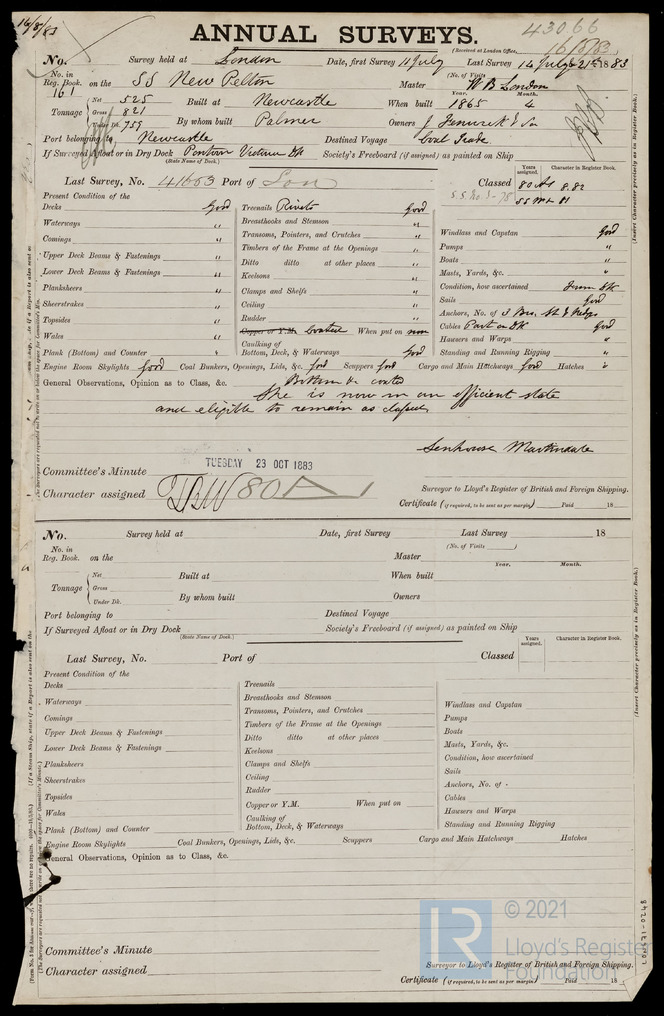 16/8/83
43066
ANNUAL SURVEYS.
(Received at London Office,
No. Survey held at London Date, first Survey 11 July Last Survey 14 July 21st 1883
(No. of Visits
No. in
Reg. Book. 161 on the SS New Pelton Master W B London
Year. Month.
Tonnage Net 525 Built at Newcastle When built 1865 4
Gross 821
Under Dk. 757 By whom built Palmer Owners J
Port belonging to Newcastle Destined Voyage Coal Trade
If Surveyed Afloat or in Dry Dock Pontoon Victoria Dk Society's Freeboard (if assigned) as painted on Ship
(State Name of Dock.)
Years assigned. Character in Register Book.
Last Survey, No. 41663 Port of Lon Classed 80 A1 8.82
S.S. No. 3-78
Present Condition of the
Decks Good
Waterways "
Comings "
Upper Deck Beams & Fastenings "
Lower Deck Beams & Fastenings "
Planksheers "
Sheerstrakes "
Topsides "
Wales "
Plank (Bottom) and Counter "
Treenails Rivets Good
Breasthooks and Stemson "
Transoms, Pointers, and Crutches "
Timbers of the Frame at the Openings "
Ditto ditto at other places "
Keelsons "
Clamps and Shelfs "
Ceiling "
Rudder "
Copper or Y.M. Coated When put on now
Caulking of
Bottom, Deck, & Waterways Good
Windlass and Capstan Good
Pumps "
Boats "
Masts, Yards, &c. "
Condition, how ascertained From Dk
Sails Good
Anchors, No. of 3 Bro. St & Kedge
Cables Part on Dk Good
Hawsers and Warps "
Standing and Running Rigging "
Engine Room Skylights Good Coal Bunkers, Openings, Lids, &c. Good Scuppers Good Cargo and Main Hatchways Good Hatches "
General Observations, Opinion as to Class, &c. Bottom coated
She is now in an efficient state
and eligible to remain as classed
Senhouse Martindale
TUESDAY 23 OCT 1883
Committee's Minute
Character assigned 80 A1
Surveyor to Lloyd's Register of British and Foreign Shipping.
Certificate (if required, to be sent as per margin) Paid 18
No. Survey held at Date, first Survey Last Survey 18
(No. of Visits )
No. in
Reg. Book. on the Master
Year. Month.
Tonnage Net Built at When built
Gross
Under Dk. By whom built Owners
Port belonging to Destined Voyage
If Surveyed Afloat or in Dry Dock Society's Freeboard (if assigned) as painted on Ship
(State Name of Dock.)
Years assigned. Character in Register Book.
Last Survey, No. Port of Classed
Present Condition of the
Decks
Waterways
Comings
Upper Deck Beams & Fastenings
Lower Deck Beams & Fastenings
Planksheers
Sheerstrakes
Topsides
Wales
Plank (Bottom) and Counter
Treenails
Breasthooks and Stemson
Transoms, Pointers, and Crutches
Timbers of the Frame at the Openings
Ditto ditto at other places
Keelsons
Clamps and Shelfs
Ceiling
Rudder
Copper or Y.M. When put on
Caulking of
Bottom, Deck, & Waterways
Windlass and Capstan
Pumps
Boats
Masts, Yards, &c.
Condition, how ascertained
Sails
Anchors, No. of
Cables
Hawsers and Warps
Standing and Running Rigging
Engine Room Skylights Coal Bunkers, Openings, Lids, &c. Scuppers Cargo and Main Hatchways Hatches
General Observations, Opinion as to Class, &c.
Committee's Minute
Character assigned
Surveyor to Lloyd's Register of British and Foreign Shipping.
Certificate (if required, to be sent as per margin) Paid 18
(Insert Character precisely as in Register Book.)
(Insert Character precisely as in Register Book.)
LR © 2021
Lloyd's Register
Foundation